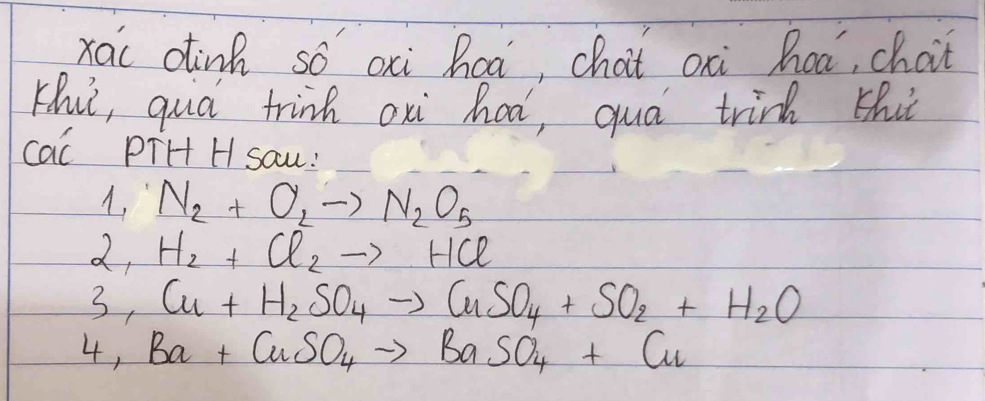 xác định số oxi hoá, chất oxi hoá, chất
khử, quá trình oxi hoá, quá trình khử
các PTHH sau:
1, N₂ + O₂ -> N₂O₅
2, H₂ + Cl₂ -> HCl
3, Cu + H₂SO₄ -> CuSO₄ + SO₂ + H₂O
4, Ba + CuSO₄ -> BaSO₄ + Cu